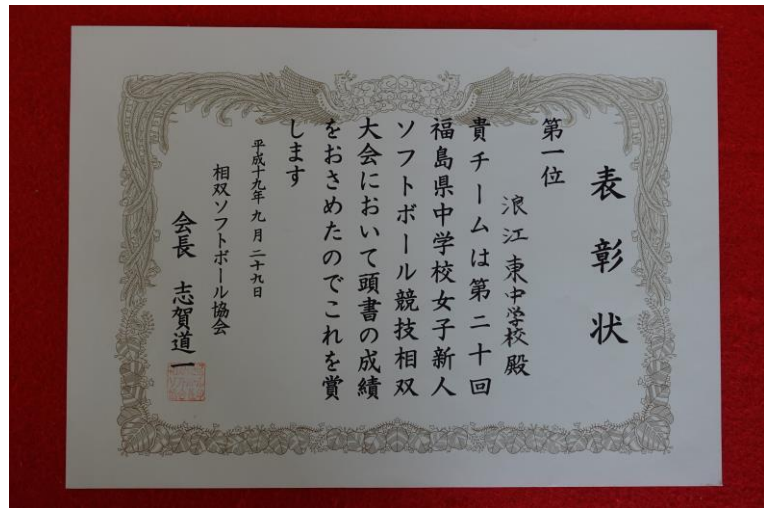 表彰状
第一位
浪江東中学校殿
貴チームは第二十回
福島県中学校女子新人
ソフトボール競技相双
大会において頭書の成績
をおさめたのでこれを賞
します
平成十九年九月二十九日
相双ソフトボール協会
会長 志賀道一